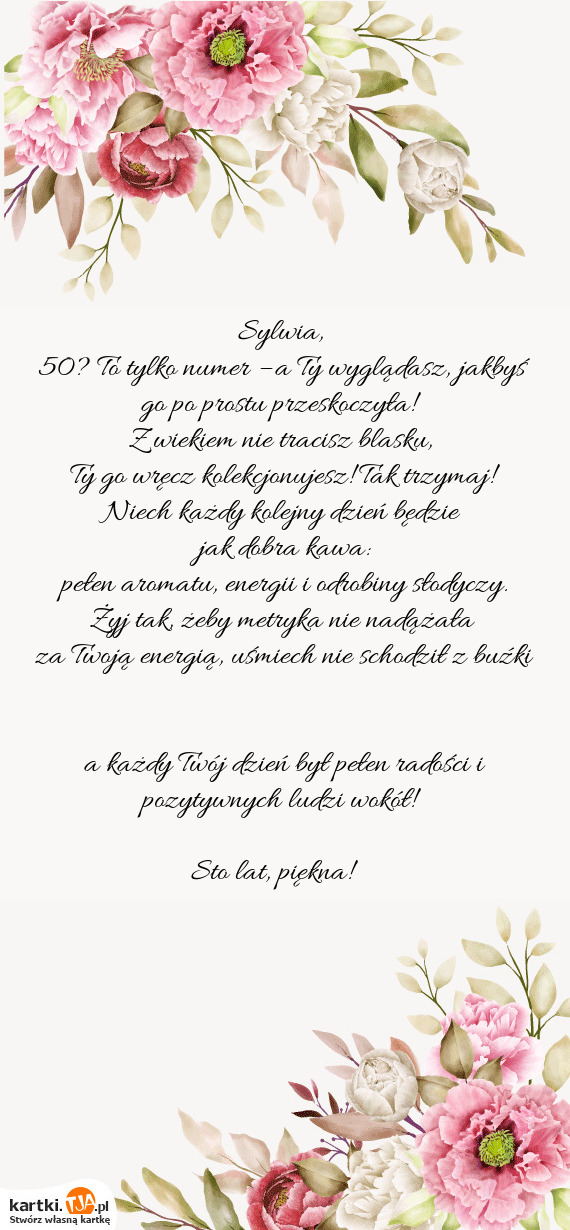 Sylwia,
50? To tylko numer – a Ty wyglądasz, jakbyś
go po prostu przeskoczyła!
Z wiekiem nie tracisz blasku,
Ty go wręcz kolekcjonujesz! Tak trzymaj!
Niech każdy kolejny dzień będzie
jak dobra kawa:
pełen aromatu, energii i odrobiny słodyczy.
Żyj tak, żeby metryka nie nadążała
za Twoją energią, uśmiech nie schodził z buźki
a każdy Twój dzień był pełen radości i
pozytywnych ludzi wokół!
Sto lat, piękna!
kartki.TJA.pl
Stwórz własną kartkę